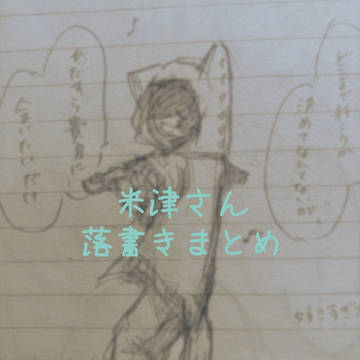 どこまで行こうか
決めてなんてないが、
ひたすら貴方に
会いたいだけ
米津さん
落書きまとめ
好きすぎ